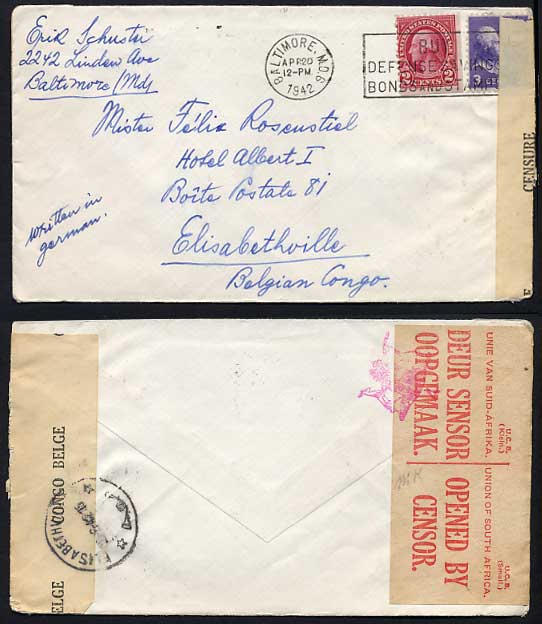 Erik Schuster
2242 Linden Ave
Baltimore (Md)
BALTIMORE, MD.
APR 20
12-PM
1942
BU
DEFENSE SAVINGS
BONDS AND STAMP
UNITED STATES POSTAGE
2 CENTS 2
3
Mister Félix Rosenstiel
Hotel Albert I
Boîte Postale 81
Elisabethville
Belgian Congo.
Written in
german.
CENSURE
CONGO BELGE
ELGE
ELISABETHV
U.C.B.
(Klein.)
UNIE VAN SUID-AFRIKA.
DEUR SENSOR
OOPGEMAAK.
U.C.B.
(Small.)
UNION OF SOUTH AFRICA.
OPENED BY
CENSOR.